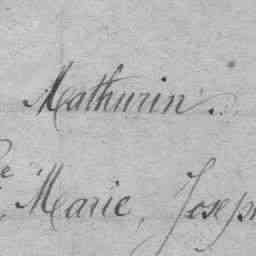 Mathurin.
Marie, Joseph